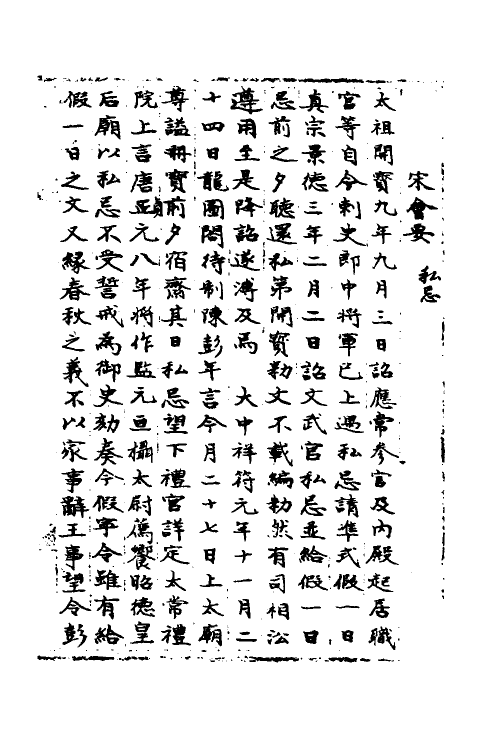 宋會要 私忌
太祖開寶九年九月三日詔應常參官及內殿起居職
官等自今刺史郎中將軍已上遇私忌請準式假一日
真宗景德三年二月二日詔文武官私忌並給假一日
忌前之夕聽還私第開寶勑文不載編勑然有司相沿
遵用至是降詔遂溥及焉 大中祥符元年十一月二
十四日龍圖閣待制陳彭年言今月二十七日上太廟
尊謚冊寶前夕宿齋其日私忌望下禮官詳定太常禮
院上言唐貞元八年將作監元亘攝太尉薦饗昭德皇
后廟以私忌不受誓戒為御史劾奏今假寧令雖有給
假一日之文又緣春秋之義不以家事辭王事望令彭